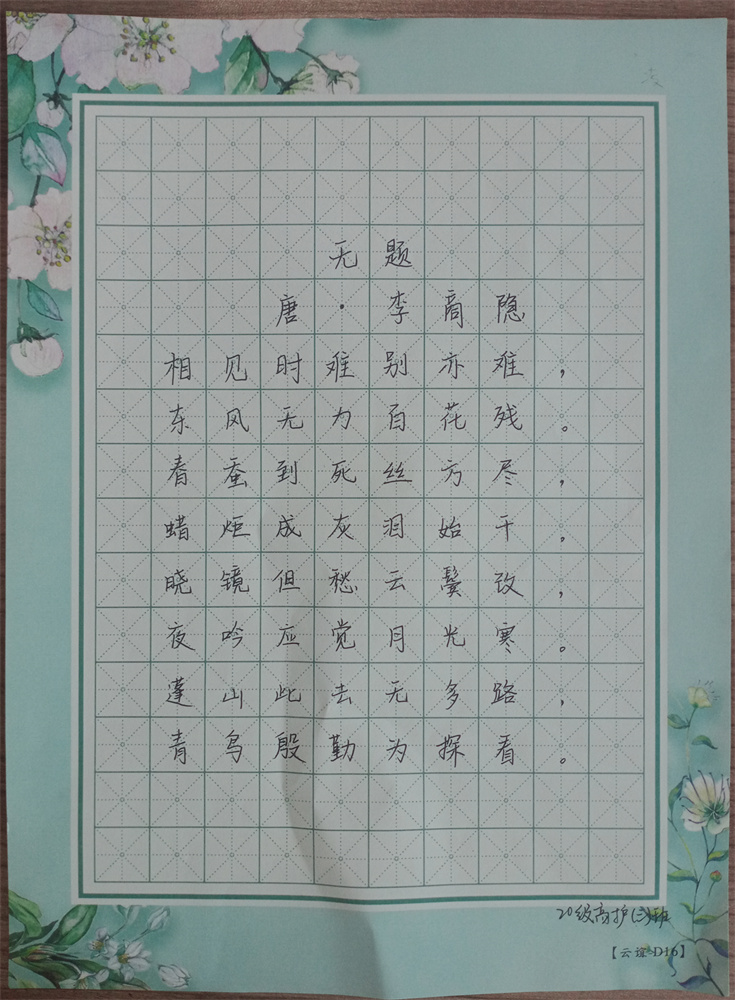 无题
唐·李商隐
相见时难别亦难，
东风无力百花残。
春蚕到死丝方尽，
蜡炬成灰泪始干，
晓镜但愁云鬓改，
夜吟应觉月光寒。
蓬山此去无多路，
青鸟殷勤为探看。
20级高护(3)班
【云谊·D16】